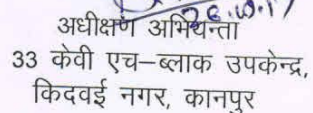 26.10.17
अधीक्षण अभियन्ता
33 केवी एच–ब्लाक उपकेन्द्र,
किदवई नगर, कानपुर